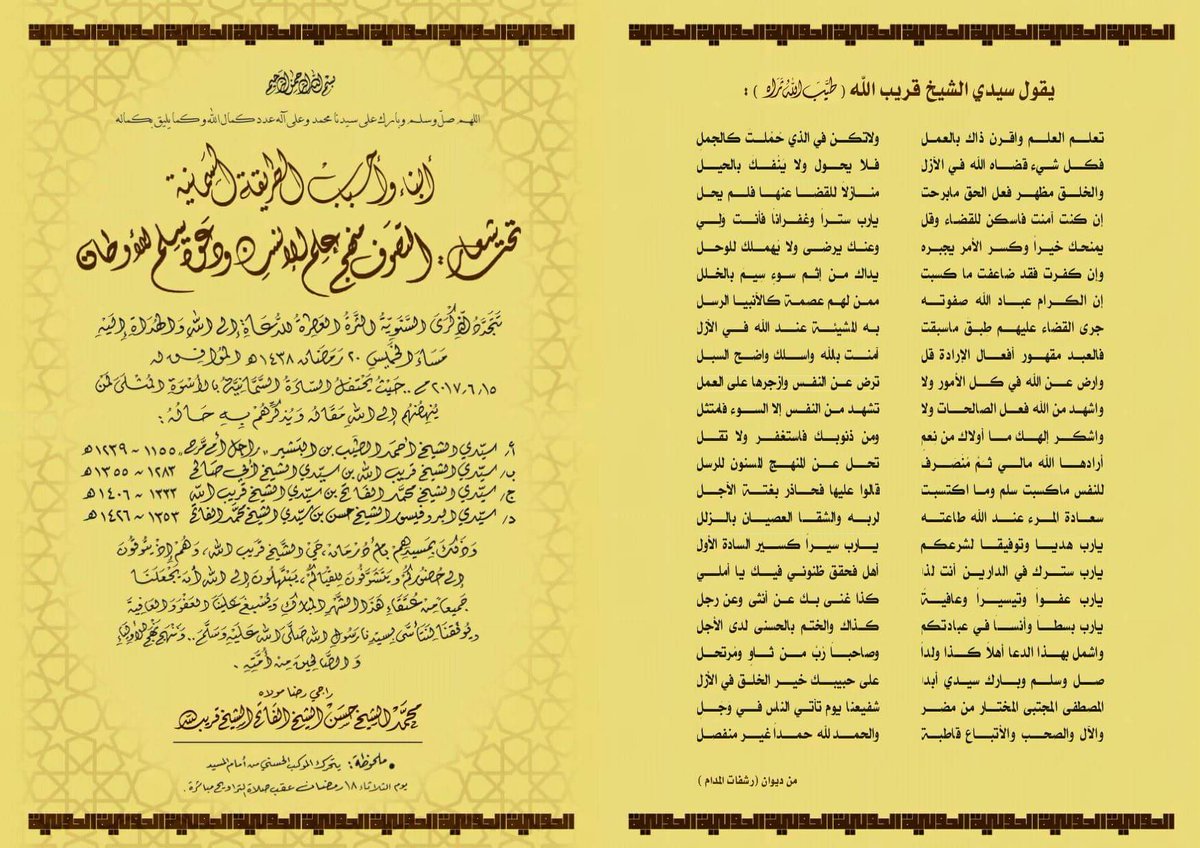 بسم الله الرحمن الرحيم
اللهم صلّ وسلم وبارك على سيدنا محمد وعلى آله عدد كمال الله وكما يليق بكماله
أبناء وأحباب الطريقة السمانية
تحت شعار: التصوف منهج علم للإنسان ودعوة سلم للأوطان
تتجدد الذكرى السنوية الثرة العطرة للدعاة إلى الله والهداة إليه
مساء الخميس ٢٠ رمضان ١٤٣٨هـ الموافق له
٢٠١٧/٦/١٥م .. حيث يحتفل السادة السمانية بالأسوة المثلى لمن
ينهضهم إلى الله مقاله ويذكرهم به حاله:
أ. سيدي الشيخ أحمد الطيب بن البشير "راجل أم مرح" ١١٥٥ ~ ١٢٣٩هـ
ب. سيدي الشيخ قريب الله بن سيدي الشيخ أبي صالح ١٢٨٣ ~ ١٣٥٥هـ
ج. سيدي الشيخ محمد الفاتح بن سيدي الشيخ قريب الله ١٣٣٣ ~ ١٤٠٦هـ
د. سيدي البروفيسور الشيخ حسن بن سيدي الشيخ محمد الفاتح ١٣٥٣ ~ ١٤٢٦هـ
وذلك بمسيدهم بأم درمان، حي الشيخ قريب الله، وهم إذ يتوقون
إلى حضوركم ويتشرفون للقيالكم، يبتهلون إلى الله أن يجعلنا
جميعا من عتقاء هذا الشهر المبارك ويسبغ علينا العفو والعافية
ويوفقنا لنتأسى بسيدنا رسول الله صلى الله عليه وسلم.. وننهج نهج الأولياء
والصالحين من أمته.
راجي رضا مولاه
محمد الشيخ حسن الشيخ الفاتح الشيخ قريب الله
• ملحوظة: يتحرك الموكب الحسني من أمام المسيد
يوم الثلاثاء ١٨ رمضان عقب صلاة التراويح مباشرة.
يقول سيدي الشيخ قريب الله (طيّب الله ثراه) :
تعلم العلم واقرن ذاك بالعمل ولاتكن في الذي حَمَلت كالجمل
فكل شيء قضاه الله في الأزل فلا يحول ولا يَنْفك بالحيل
والخلق مظهر فعل الحق مابرحت منازلاً للقضا عنها فلم يحل
إن كنت أمنت فاسكن للقضاء وقل يارب ستراً وغفراناً فأنت ولي
يمنحك خيراً وكسر الأمر يجبره وعنك يرضى ولا يهملك للوحل
وإن كفرت فقد ضاعفت ما كسبت يداك من إثم سوءٍ سيم بالخلل
إن الكرام عباد الله صفوته ممن لهم عصمة كالأنبيا الرسل
جرى القضاء عليهم طبق ماسبقت به المشيئة عند الله في الأزل
فالعبد مقهور أفعال الإرادة قل آمنت بالله واسلك واضح السبل
وارض عن الله في كل الأمور ولا ترض عن النفس وازجرها على العمل
واشهد من الله فعل الصالحات ولا تشهد من النفس إلا السوء فمتثل
واشكر إلهك ما أولاك من نعمٍ ومن ذنوبك فاستغفر ولا تقل
أرادها الله مالي ثمُ مُنصرف تحل عن المنهج المسنون للرسل
للنفس ماكسبت سلم وما اكتسبت قالوا عليها فحاذر بغتة الأجل
سعادة المرء عند الله طاعته لربه والشقا العصيان بالزلل
يارب هديا وتوفيقا لشرعكم يارب سيراً كسير السادة الأول
يارب سترك في الدارين أنت لذا أهل فحقق ظنوني فيك يا أملي
يارب عفواً وتيسيراً وعافية كذا غنى بك عن أنثى وعن رجل
يارب بسطا وأنسا في عبادتكم كذاك والختم بالحسنى لدى الأجل
واشمل بهذا الدعا أهلاً كذا ولداً وصاحباً رَبَ من ثاوٍ ومُرتحل
صل وسلم وبارك سيدي أبدا على حبيبك خير الخلق في الأزل
المصطفى المجتبى المختار من مضر شفيعنا يوم تأتي الناس في وجل
والآل والصحب والأتباع قاطبة والحمد لله حمداً غير منفصل
من ديوان (رشفات المدام )